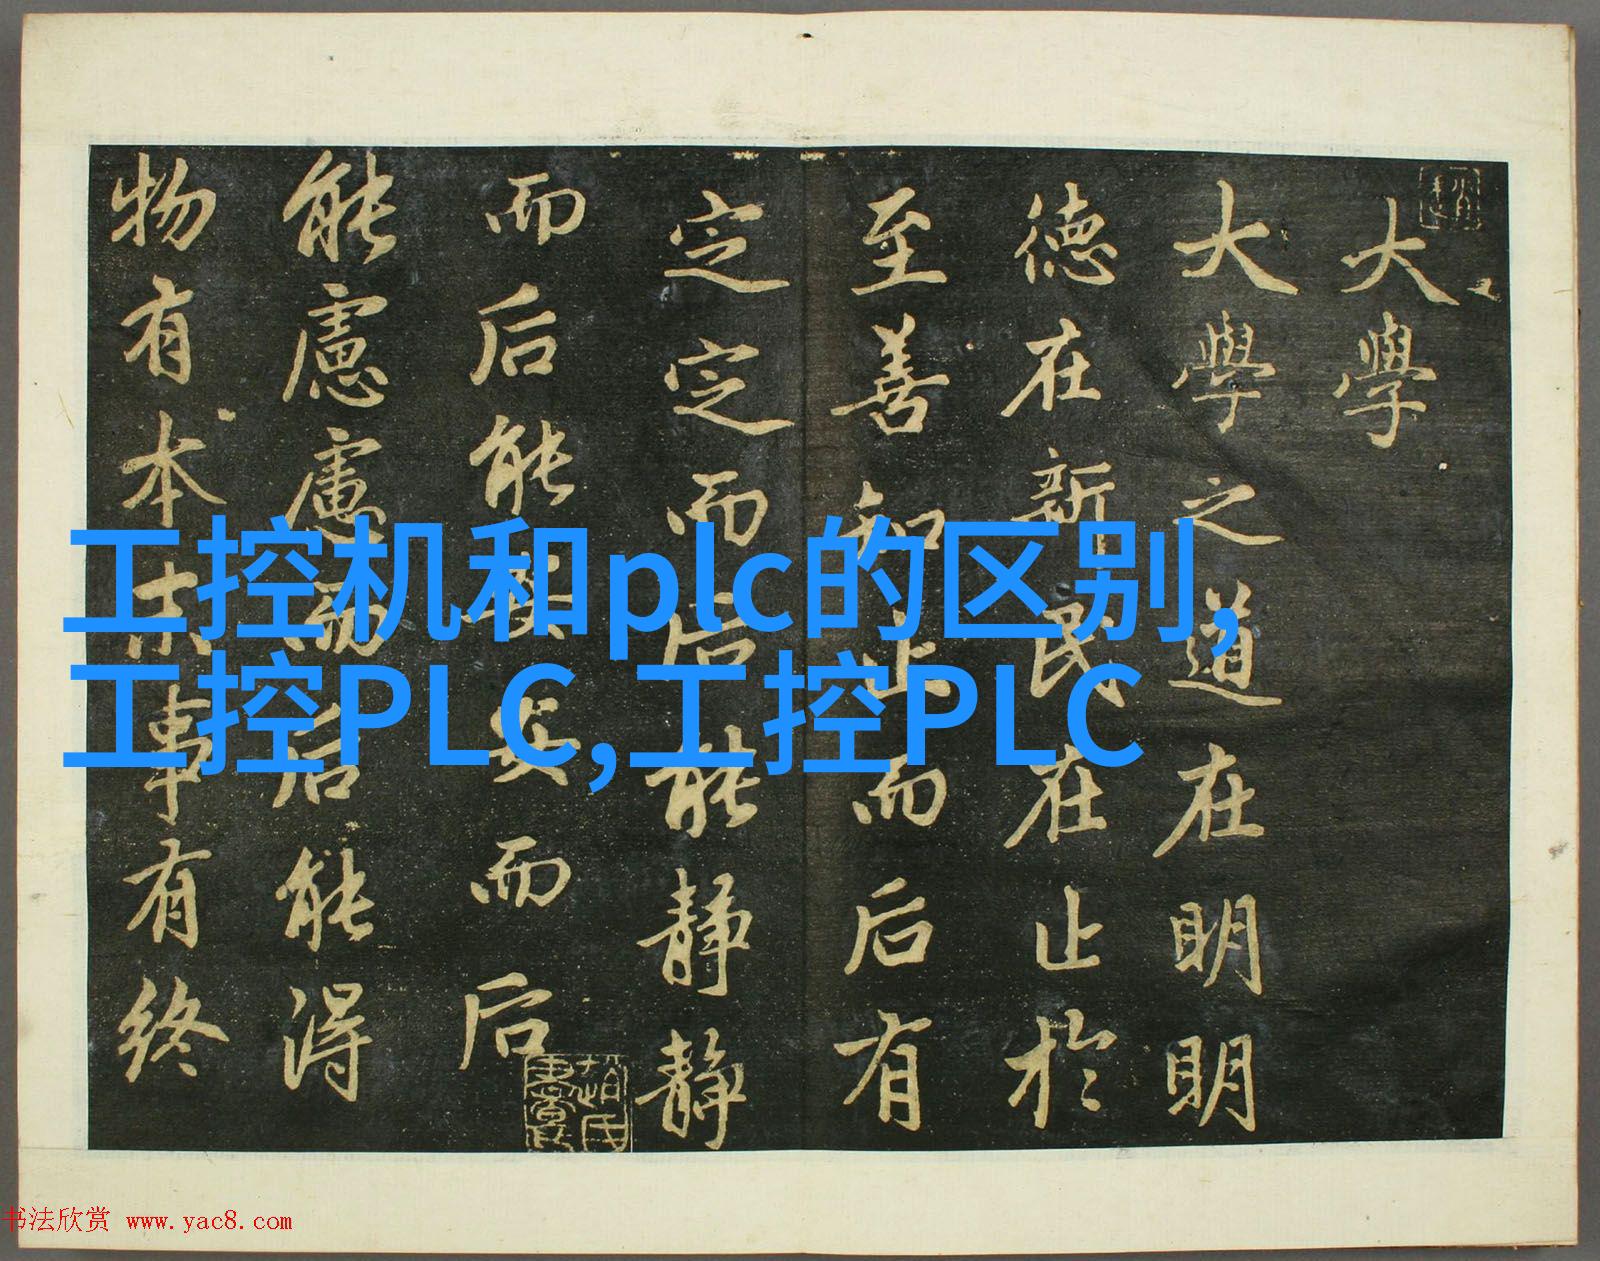 大學
大學之道在明明
德在新民在止於
至善知止而后有
定定而后能静静
而后能安安而后
能慮慮而后能得
物有本末事有终
工控机和plc的区别,
工控PLC,工控PLC
书法欣赏 www.yac8.com